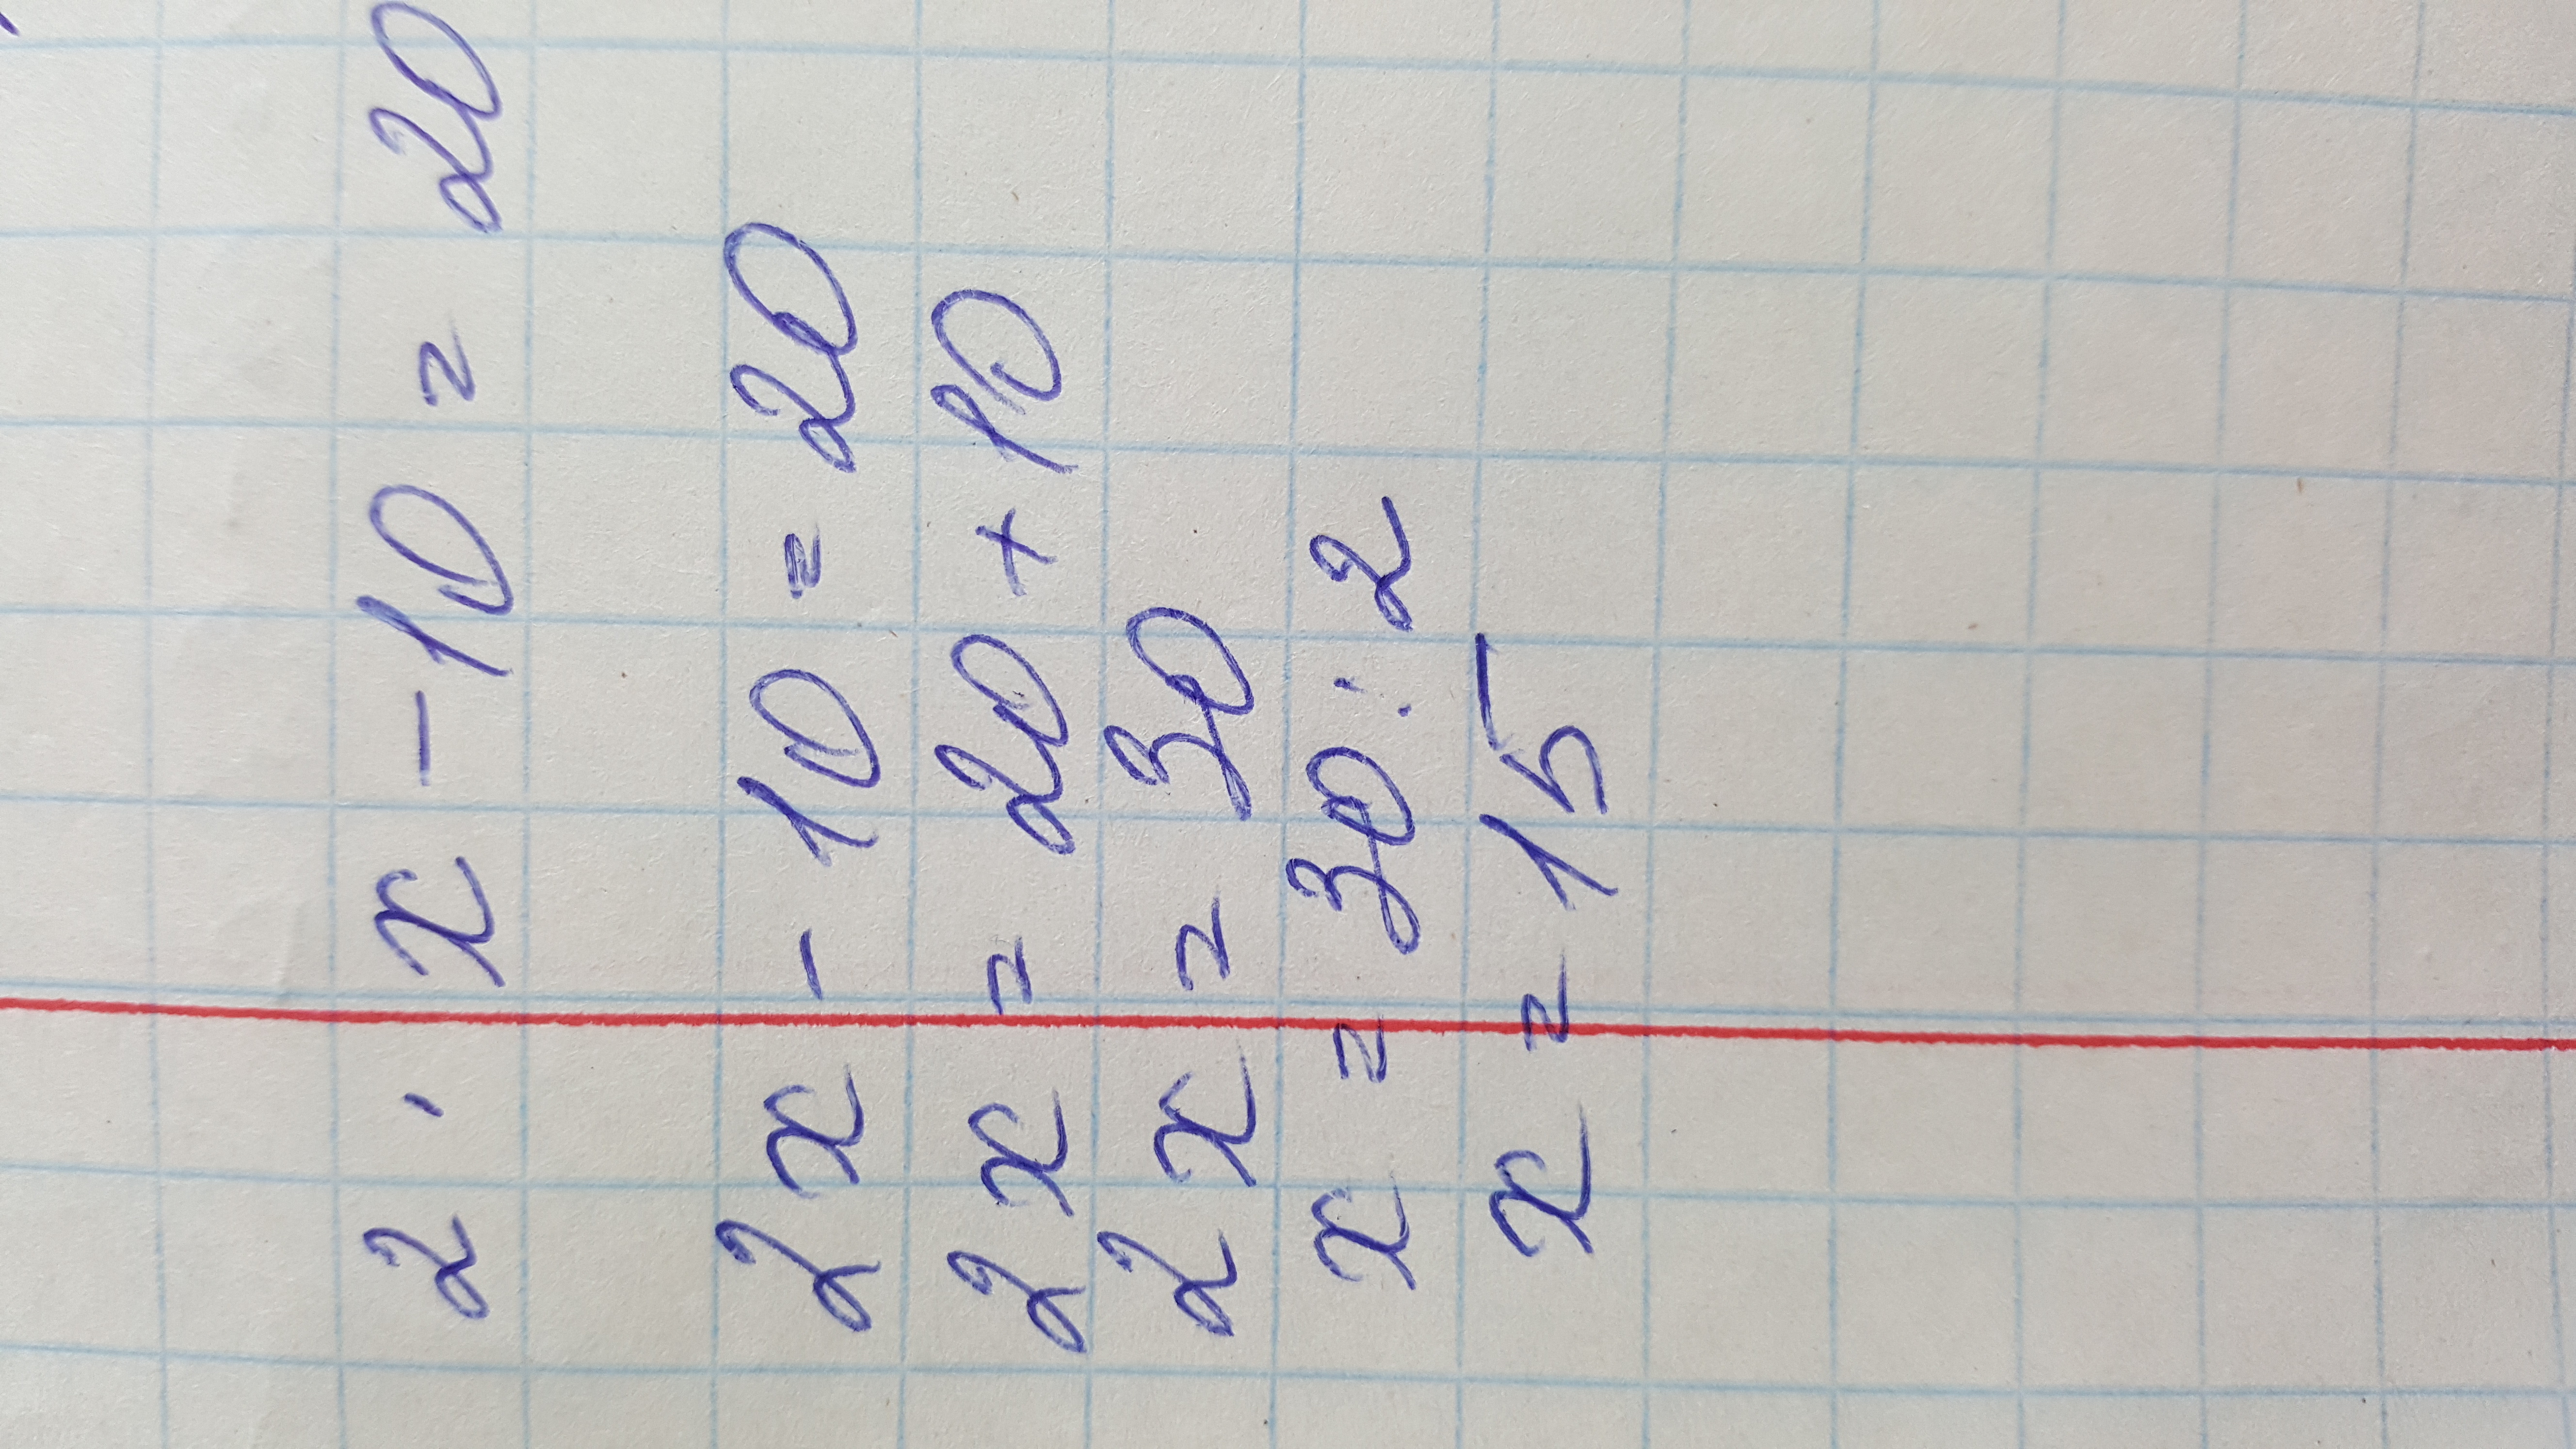 2 · x - 10 = 20
2x - 10 = 20
2x = 20 + 10
2x = 30
x = 30 : 2
x = 15